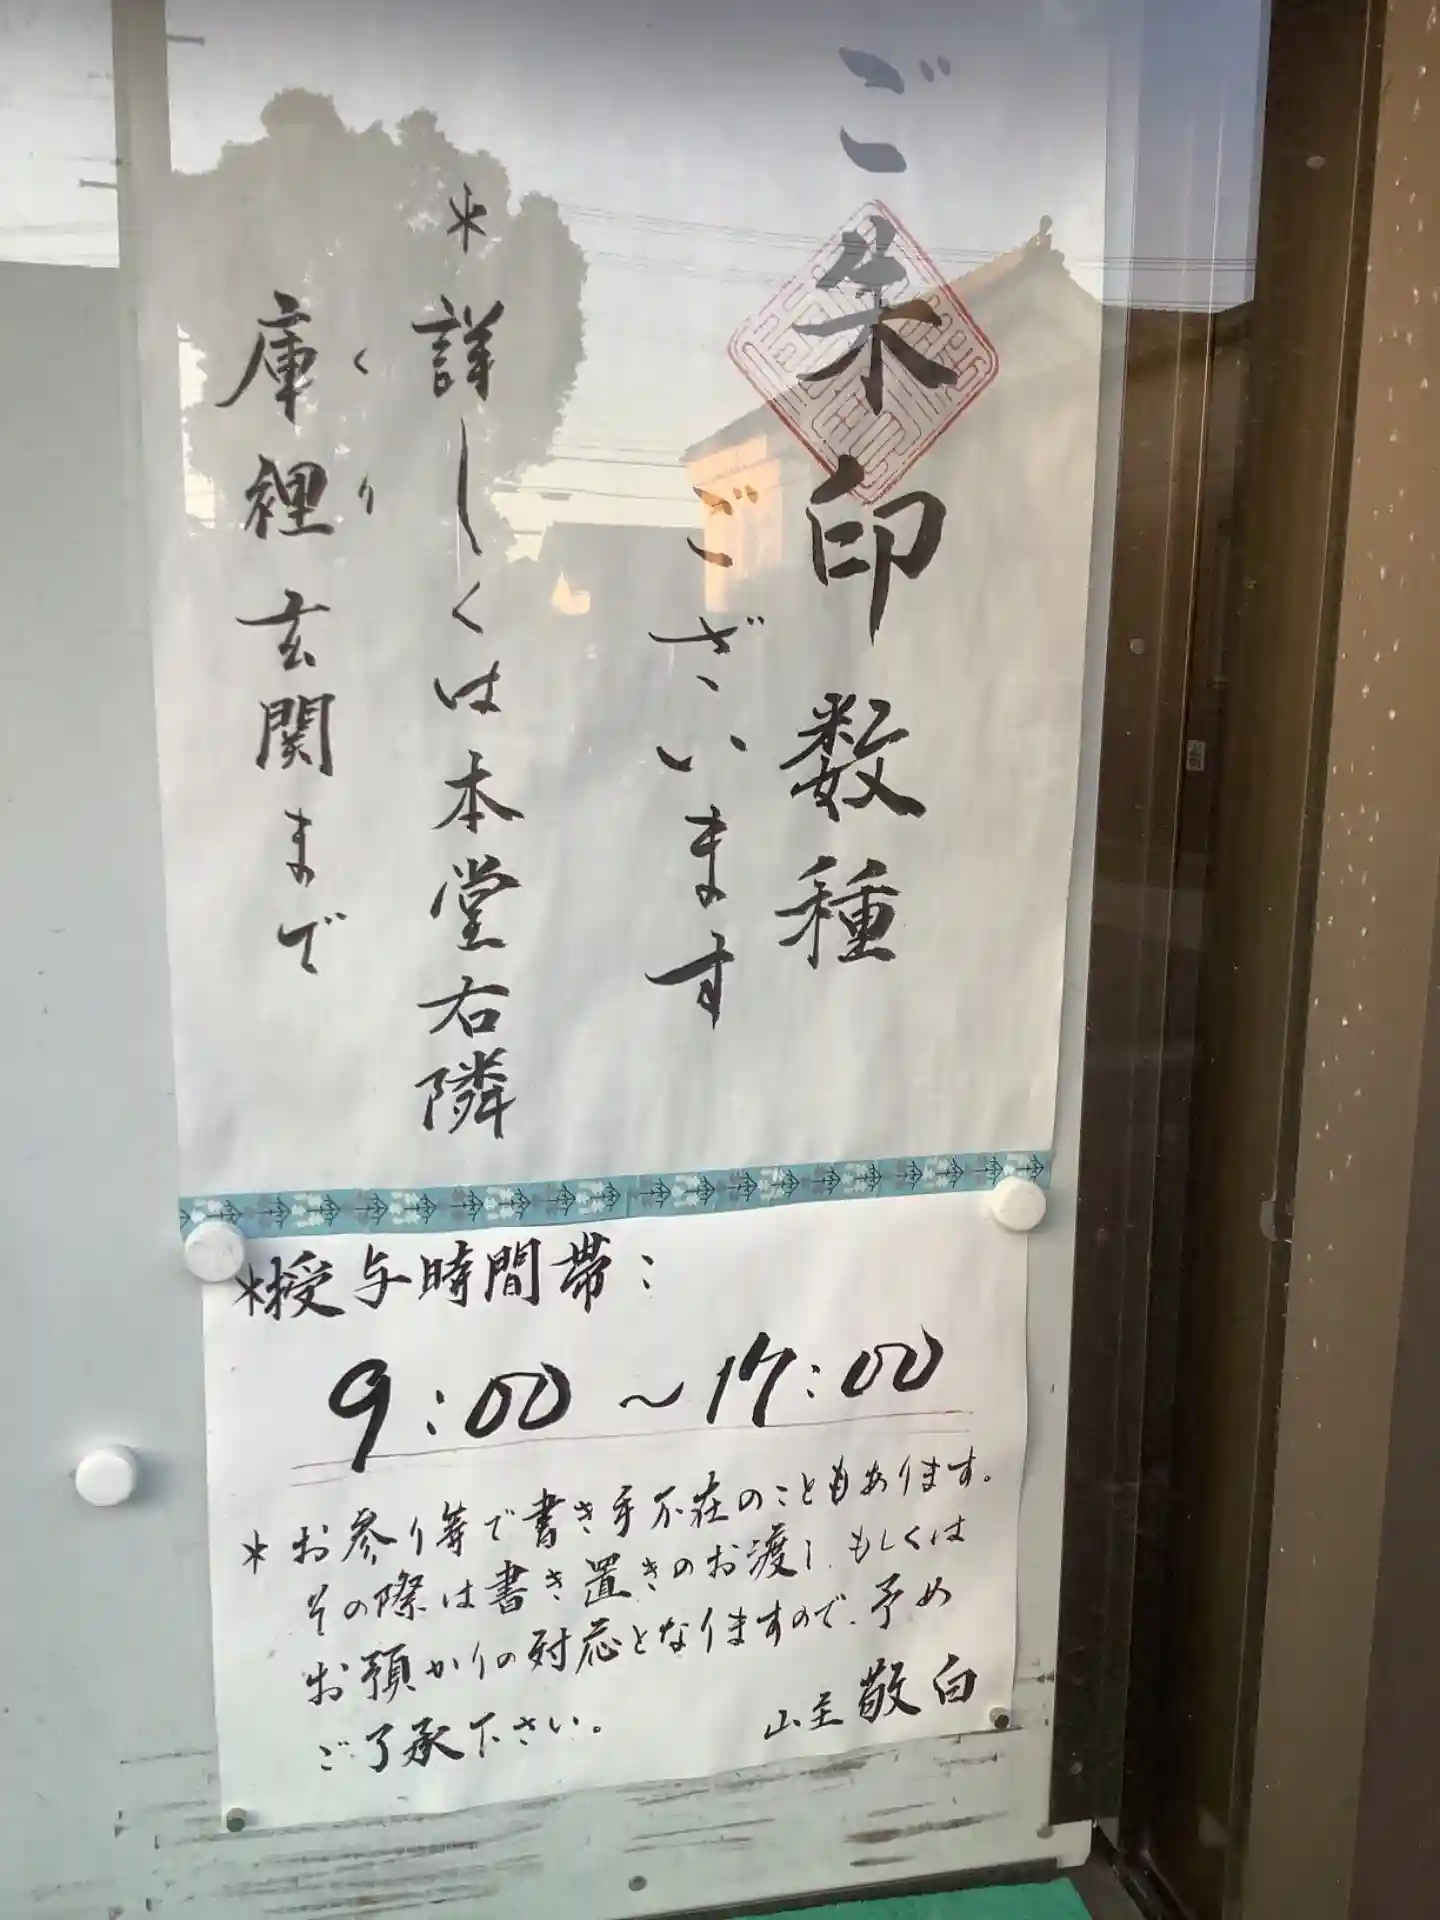 ご朱印数種
ございます
＊詳しくは本堂右隣
庫裡玄関まで
くり
＊授与時間帯：
9：00～17：00
＊お参り等で書き手不在のこともあります。
その際は書き置きのお渡し、もしくは
お預かりの対応となりますので、予め
ご了承下さい。
山主 敬白